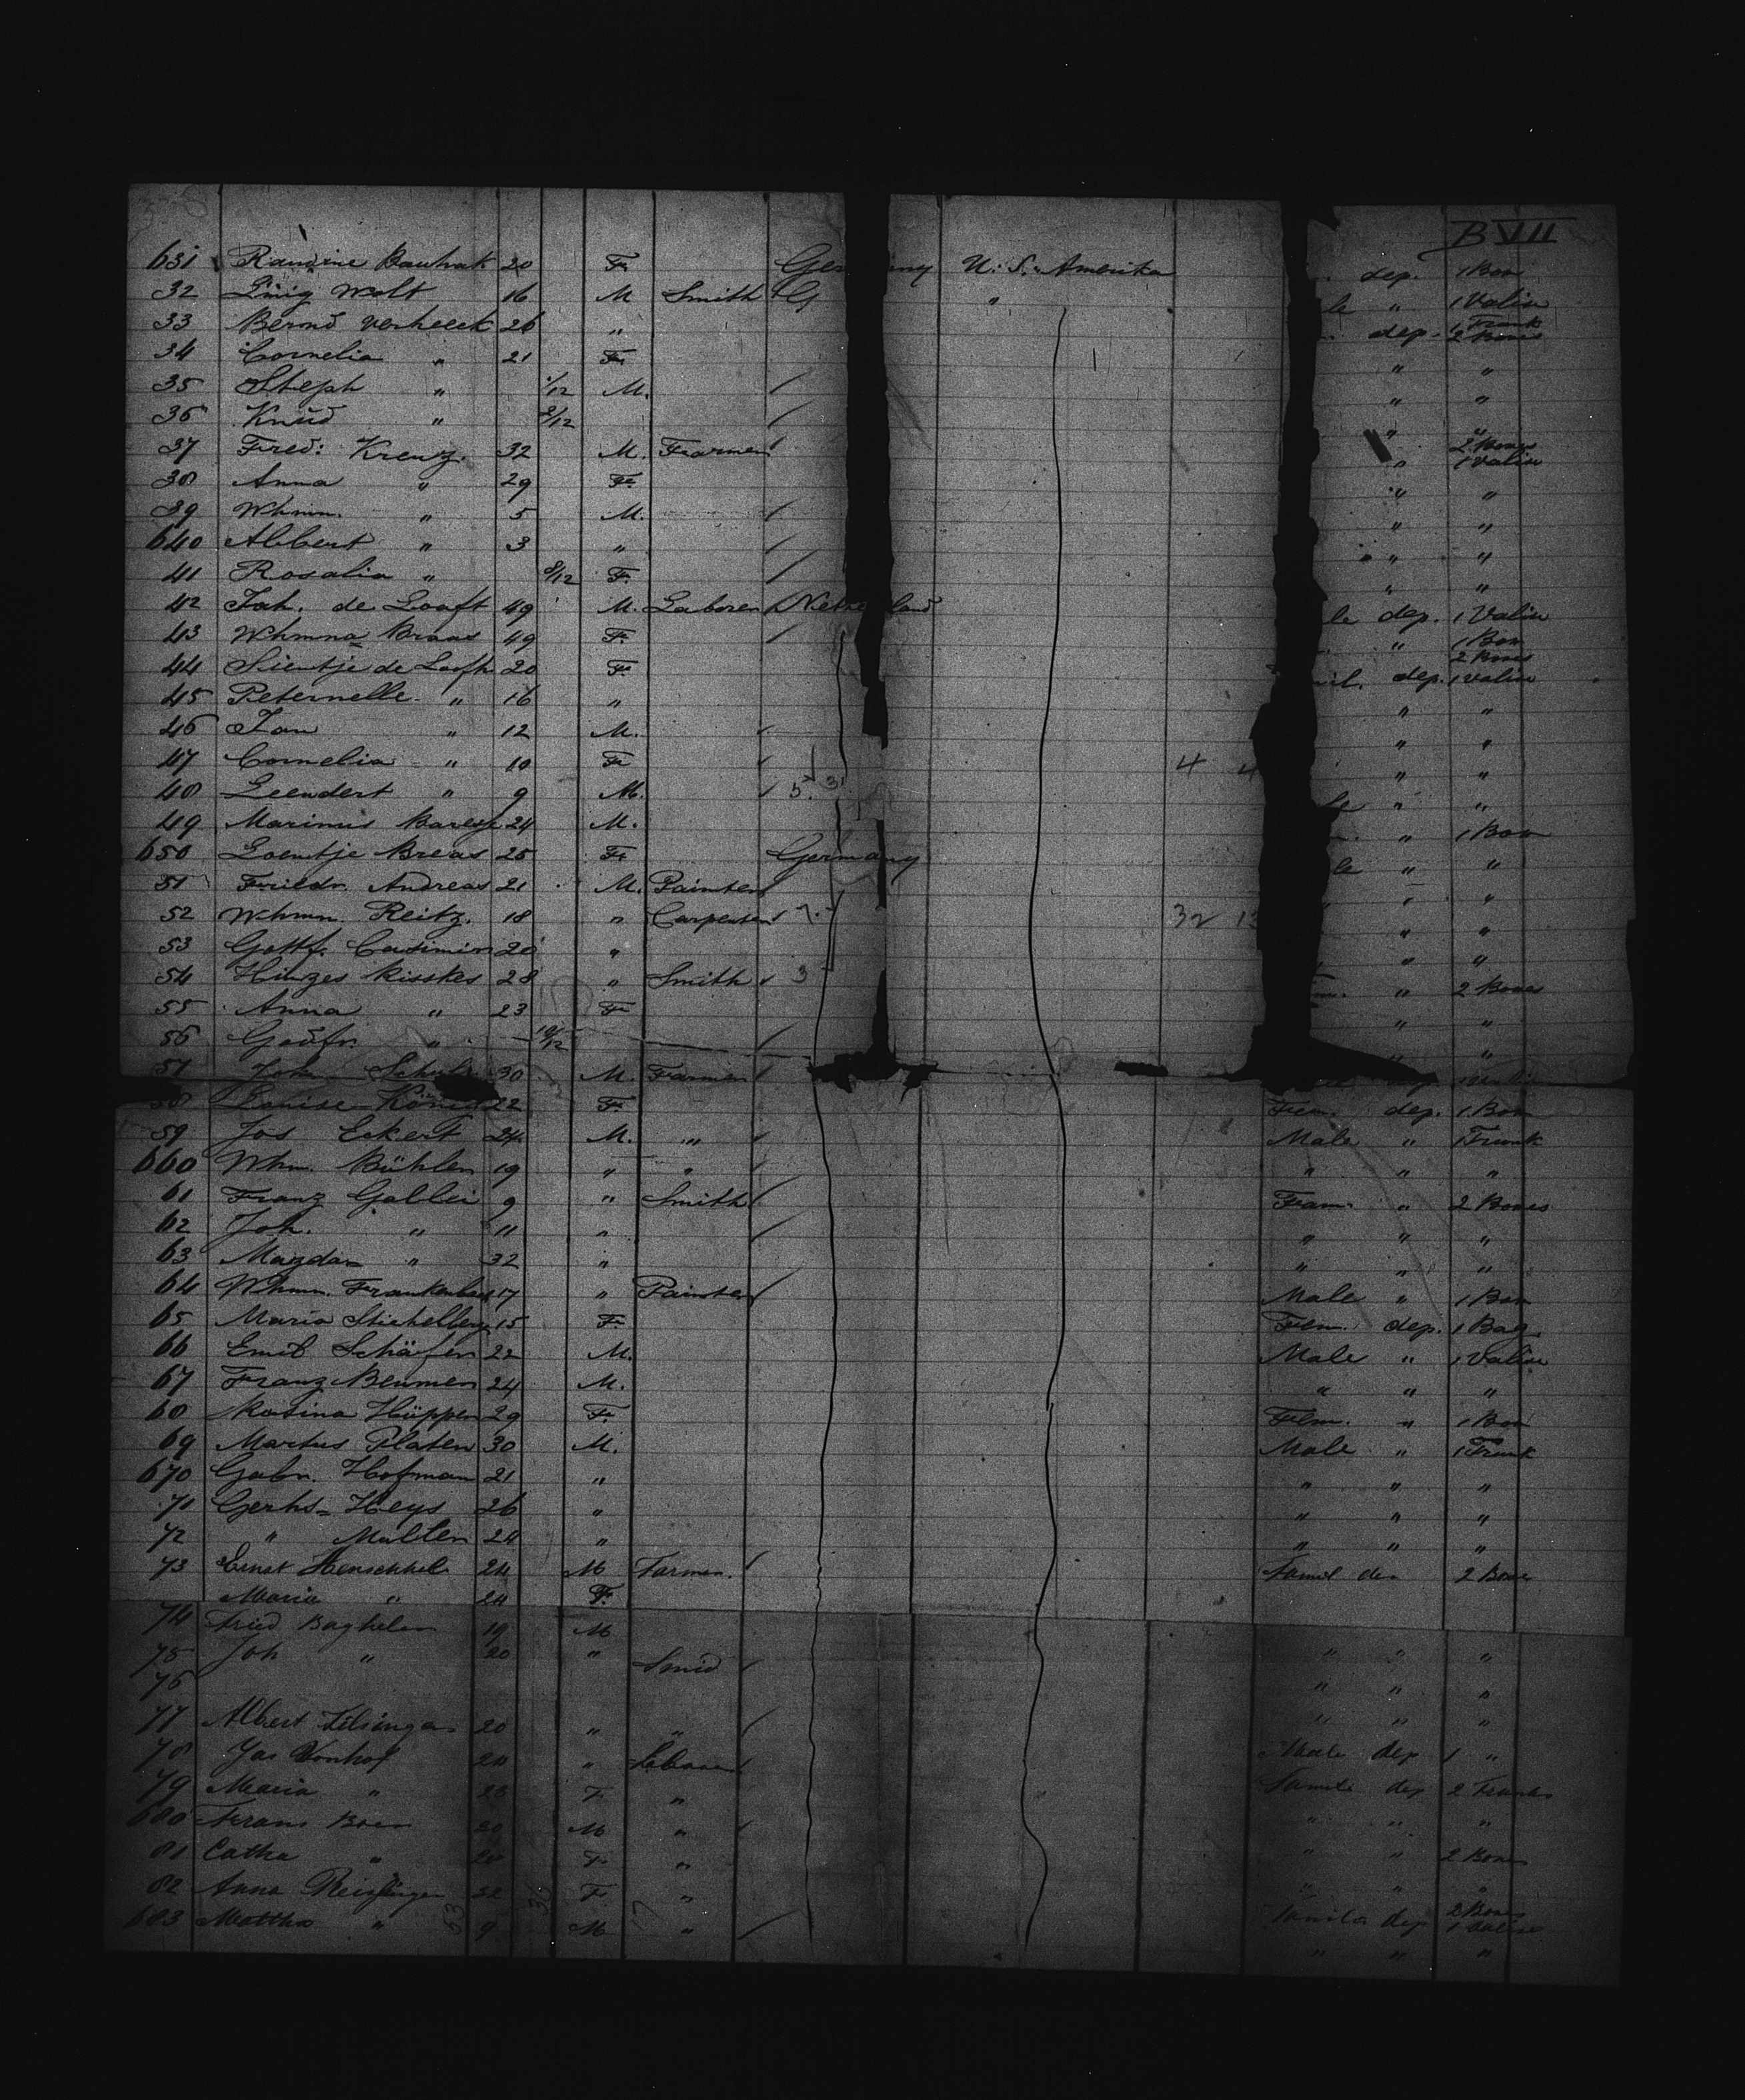 B VII
631 Bauhak 20 F. Germany U. S. Amerika dep. 1 Box
32 Wolt 16 M Smith G " le " 1 Valise
33 Bernd Verheeck 26 " dep. 1 Trunk 2 Boxes
34 Cornelia " 21 F. " "
35 Steph " 1/12 M. " "
36 Knud " /12 " "
37 Fred: Kreuz 32 M. Farmer " 2 Boxes 1 Valise
38 Anna " 29 F. " "
39 Whmn. " 5 M. " "
640 Albert " 3 " " "
41 Rosalia " 8/12 F. " "
42 Joh. de Looft 49 M. Laborer Netherland le dep. 1 Valise
43 Whmna Braas 49 F. " 1 Box
44 Sientje de Looft 20 F. mil. dep. 2 Boxes 1 Valise
45 Peternelle " 16 " " "
46 Jan " 12 M. " "
47 Cornelia " 10 F. 4 4 " "
48 Leendert " 9 M. 5. 3 le " "
49 Marinus 24 M. " 1 Box
650 Loentje Breas 25 F. Germany le " "
51 Friedr. Andreas 21 M. Painter " "
52 Whmn. Reitz. 18 " Carpenter 7. 32 13 " "
53 Gottf. Casimir 20 " " "
54 Hinzes Kisskes 28 " Smith 3 " 2 Boxes
55 Anna " 23 F. " "
56 Godfr. " 10/12 " "
57 Joh. Schulz 30 M. Farmer
58 Louise König 22 F. Fem. dep. 1 Box
59 Jos Eckert 24 M. " Male " 1 Trunk
660 Whm. Bühler 19 " " " " "
61 Franz Gallei 9 " Smith Fam. " 2 Boxes
62 Joh. " 11 " " " "
63 Magda " 32 " " " "
64 Whmn. Frankenbach 17 " Painter Male " 1 Box
65 Maria Stichelberg 15 F. Fem. dep. 1 Bag
66 Emil Schäfer 22 M. Male " 1 Valise
67 Franz Bemmer 24 M. " " "
68 Rosina Hüppen 29 F. Fem. " 1 Box
69 Martus Platen 30 M. Male " 1 Trunk
670 Gabr. Hofman 21 " " " "
71 Gerhs. Heys 26 " " " "
72 " Multer 24 " " " "
73 Ernst Henschkel 24 M Farmer. Famil dep 2 Boxes
Maria " 24 F.
74 Fried Baghelen 19 M
75 Joh " 20 " Smid " " "
76 " " "
77 Albert 20 " " " " "
78 Jas Vonhof 24 " Laborer Male dep 1 "
79 Maria " 25 F. " Famile dep 2 Trunks
680 Frans 30 M " " " "
81 Catha " F. " " " 2 Boxes
82 Anna 32 F. " " " "
683 " 9 M " Famile dep 2 Boxes 1 Valise
" " "